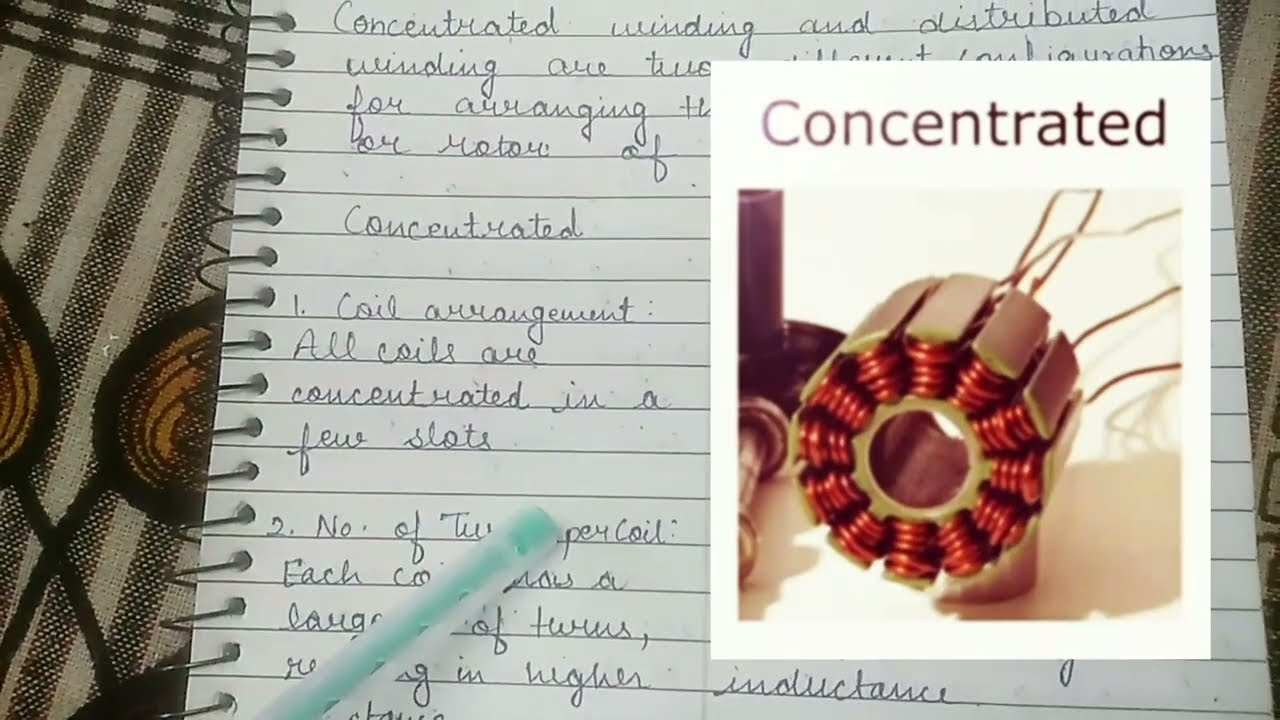 Concentrated winding and distributed
winding are two configurations
for arranging
for rotor of
Concentrated
Concentrated
1. Coil arrangement:
All coils are
concentrated in a
few slots
2. No. of per Coil:
Each has a
of turns,
in higher inductance